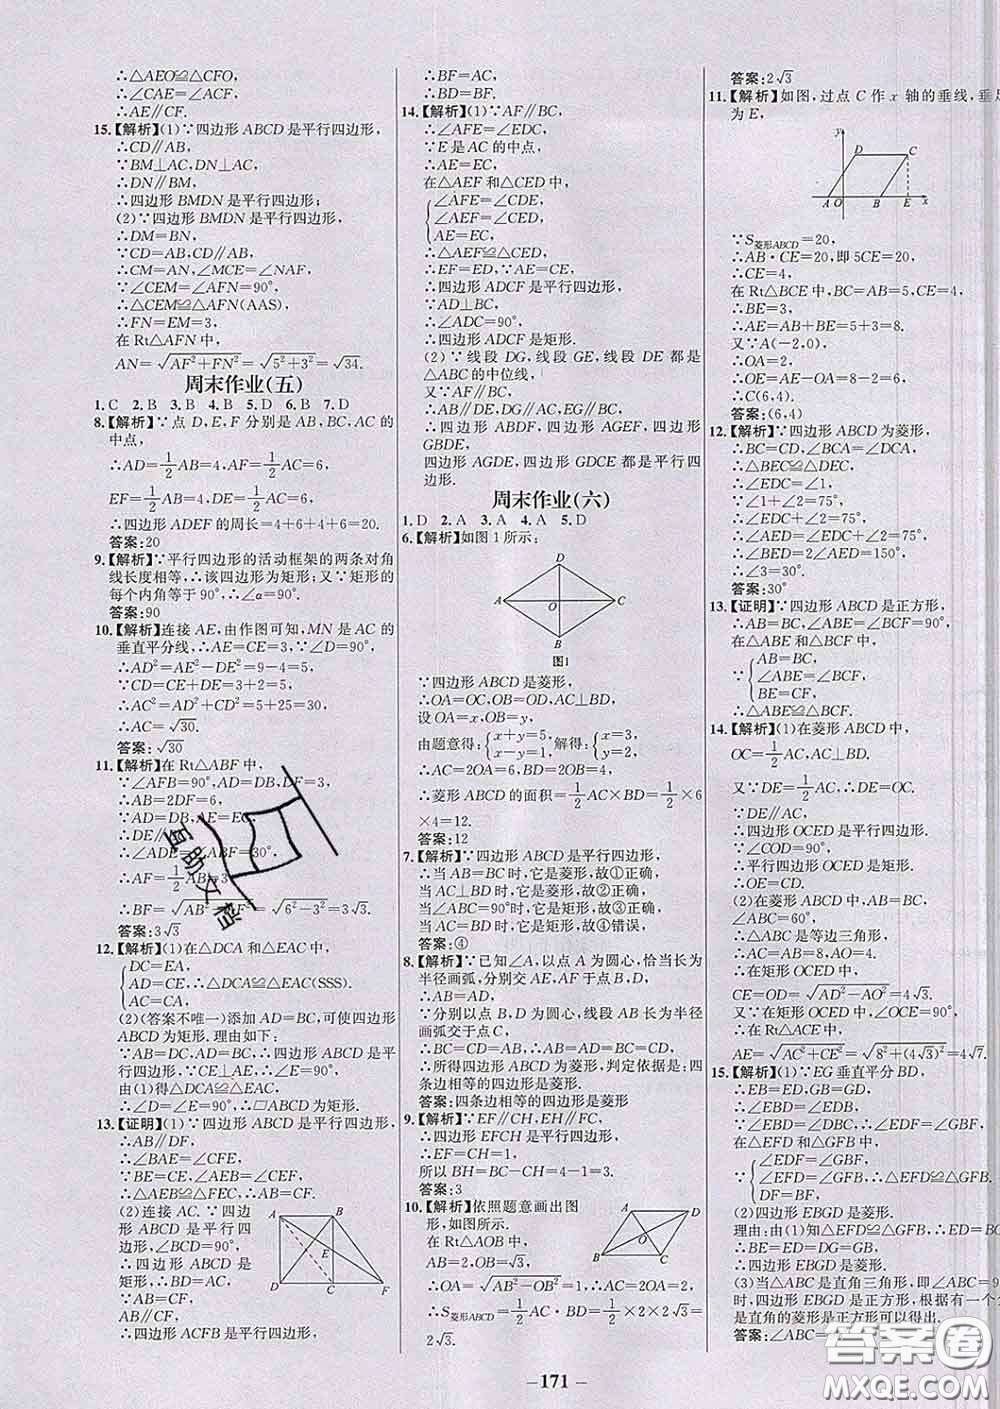 ∴△AEO≌△CFO,
∴∠CAE=∠ACF,
∴AE∥CF.
15.【解析】(1)∵四边形 ABCD 是平行四边形,
∴CD∥AB,
∵BM⊥AC,DN⊥AC,
∴DN∥BM,
∴四边形 BMDN 是平行四边形;
(2)∵四边形 BMDN 是平行四边形,
∴DM=BN,
∵CD=AB,CD∥AB,
∴CM=AN,∠MCE=∠NAF,
∵∠CEM=∠AFN=90°,
∴△CEM≌△AFN(AAS)
∴FN=EM=3,
在 Rt△AFN 中,
AN=√(AF²+FN²)=√(5²+3²)=√34.
周末作业(五)
1.C 2.B 3.B 4.B 5.D 6.B 7.D
8.【解析】∵点 D,E,F 分别是 AB,BC,AC 的
中点,
∴AD=1/2AB=4,AF=1/2AC=6,
EF=1/2AB=4,DE=1/2AC=6,
∴四边形 ADEF 的周长=4+6+4+6=20.
答案:20
9.【解析】∵平行四边形的活动框架的两条对角
线长度相等,∴该四边形为矩形;又∵矩形的
每个内角等于90°,∴∠α=90°.
答案:90
10.【解析】连接 AE,由作图可知,MN 是 AC 的
垂直平分线,∴AE=CE=3,∵∠D=90°,
∴AD²=AE²-DE²=9-4=5,
∵CD=CE+DE=3+2=5,
∴AC²=AD²+CD²=5+25=30,
∴AC=√30.
答案:√30
11.【解析】在 Rt△ABF 中,
∵∠AFB=90°,AD=DB,DF=3,
∴AB=2DF=6,
∵AD=DB,AE=EC,
∴DE∥
∴∠ADE= ABF=30°,
∴AF=1/2AB=3
∴BF=√(AB² F²)=√(6²-3²)=3√3
答案:3√3
12.【解析】(1)在△DCA 和△EAC 中,
DC=EA,
AD=CE,∴△DCA≌△EAC(SSS).
AC=CA,
(2)(答案不唯一)添加 AD=BC,可使四边形
ABCD 为矩形.理由如下:
∵AB=DC,AD=BC,∴四边形 ABCD 是平
行四边形,∵CE⊥AE,∴∠E=90°,
由(1)得△DCA≌△EAC,
∴∠D=∠E=90°,∴□ABCD 为矩形.
13.【证明】(1)∵四边形 ABCD 是平行四边形,
∴AB∥DF,
∴∠BAE=∠CFE,
∵BE=CE,∠AEB=∠CEF,
∴△AEB≌△FEC,∴AB=CF.
(2)连接 AC.∵四边
形 ABCD 是平行四
边形,∴∠BCD=90°
∴四边形 ABCD 是
矩形,
∵AB=CF,
AB∥CF,
∴四边形 ACFB 是平行四边形,
A B
E
D C F
∴BF=AC,
∴BD=BF.
14.【解析】(1)∵AF∥BC,
∴∠AFE=∠EDC,
∵E 是 AC 的中点,
∴AE=EC,
在△AEF 和△CED 中,
∠AFE=∠CDE,
∠AEF=∠CED,
AE=EC,
∴△AEF≌△CED,
∴EF=ED,∵AE=EC,
∴四边形 ADCF 是平行四边形,
∵AD⊥BC,
∴∠ADC=90°,
∴四边形 ADCF 是矩形.
(2)∵线段 DG,线段 GE,线段 DE 都是
△ABC 的中位线,
又∵AF∥BC,
∴AB∥DE,DG∥AC,EG∥BC,
∴四边形 ABDF,四边形 AGEF,四边形
GBDE,
四边形 AGDE,四边形 GDCE 都是平行四
边形.
周末作业(六)
1.D 2.A 3.A 4.A 5.D
6.【解析】如图1所示:
D
A O C
B
图1
∵四边形 ABCD 是菱形,
∴OA=OC,OB=OD,AC⊥BD,
设 OA=x,OB=y,
由题意得:{x+y=5, x-y=1, 解得:{x=3, y=2,
∴AC=2OA=6,BD=2OB=4,
∴菱形 ABCD 的面积=1/2AC×BD=1/2×6
×4=12.
答案:12
7.【解析】∵四边形 ABCD 是平行四边形,
∴当 AB=BC 时,它是菱形,故①正确,
当 AC⊥BD 时,它是菱形,故②正确,
当∠ABC=90°时,它是矩形,故③正确,
当 AC=BD 时,它是矩形,故④错误,
答案:④
8.【解析】∵已知∠A,以点 A 为圆心,恰当长为
半径画弧,分别交 AE,AF 于点 B,D,
∴AB=AD,
∵分别以点 B,D 为圆心,线段 AB 长为半径
画弧交于点 C,
∴BC=CD=AB=AD,
∴所得四边形 ABCD 为菱形,判定依据是:四
条边相等的四边形是菱形.
答案:四条边相等的四边形是菱形
9.【解析】∵EF∥CH,EH∥FC,
∴四边形 EFCH 是平行四边形,
∴EF=CH=1,
所以 BH=BC-CH=4-1=3.
答案:3
10.【解析】依照题意画出图
形,如图所示.
在 Rt△AOB 中,
AB=2,OB=√3,
A D
O
B C
∴OA=√(AB²-OB²)=1,∴AC=2OA=2,
∴S菱形ABCD=1/2AC·BD=1/2×2×2√3=
2√3.
答案:2√3
11.【解析】如图,过点 C 作 x 轴的垂线,垂足
为 E,
y
D C
A O B E x
∵S菱形ABCD=20,
∴AB·CE=20,即 5CE=20,
∴CE=4,
在 Rt△BCE 中,BC=AB=5,CE=4,
∴BE=3,
∴AE=AB+BE=5+3=8.
又∵A(-2,0),
∴OA=2,
∴OE=AE-OA=8-2=6,
∴C(6,4).
答案:(6,4)
12.【解析】∵四边形 ABCD 为菱形,
∴BC=CD,∠BCA=∠DCA,
∴△BEC≌△DEC,
∴∠EDC=∠1,
∵∠1+∠2=75°,
∴∠EDC+∠2=75°,
∴∠AED=∠EDC+∠2=75°,
∴∠BED=2∠AED=150°,
∴∠3=30°.
答案:30°
13.【证明】∵四边形 ABCD 是正方形,
∴AB=BC,∠ABE=∠BCF=90°,
在△ABE 和△BCF 中,
∵{AB=BC,
∠ABE=∠BCF,
BE=CF,
∴△ABE≌△BCF.
14.【解析】(1)在菱形 ABCD 中,
OC=1/2AC,AC⊥BD.
又∵DE=1/2AC,∴DE=OC.
∵DE∥AC,
∴四边形 OCED 是平行四边形.
∵∠COD=90°,
∴平行四边形 OCED 是矩形.
∴OE=CD.
(2)在菱形 ABCD 中,
∠ABC=60°,
∴△ABC 是等边三角形,
∴AC=AB=8,AO=4.
∴在矩形 OCED 中,
CE=OD=√(AD²-AO²)=4√3.
又∵在矩形 OCED 中,∠OCE=90°,
∴在 Rt△ACE 中,
AE=√(AC²+CE²)=√(8²+(4√3)²)=4√7.
15.【解析】(1)∵EG 垂直平分 BD,
∴EB=ED,GB=GD,
∴∠EBD=∠EDB,
∵∠EBD=∠DBC,∴∠EDF=∠GBF,
在△EFD 和△GFB 中,
∵{∠EDF=∠GBF,
∠EFD=∠GFB,
DF=BF,
∴△EFD≌△GFB.
(2)四边形 EBGD 是菱形.
理由:由(1)知△EFD≌△GFB,∴ED=BG
∴BE=ED=DG=GB,
∴四边形 EBGD 是菱形.
(3)当△ABC 是直角三角形,即∠ABC=9
时,四边形 EBGD 是正方形,根据有一个
是直角的菱形是正方形可以得出.
答案:∠ABC=
互助文档
答案圈
MXQE.COM
– 171 –